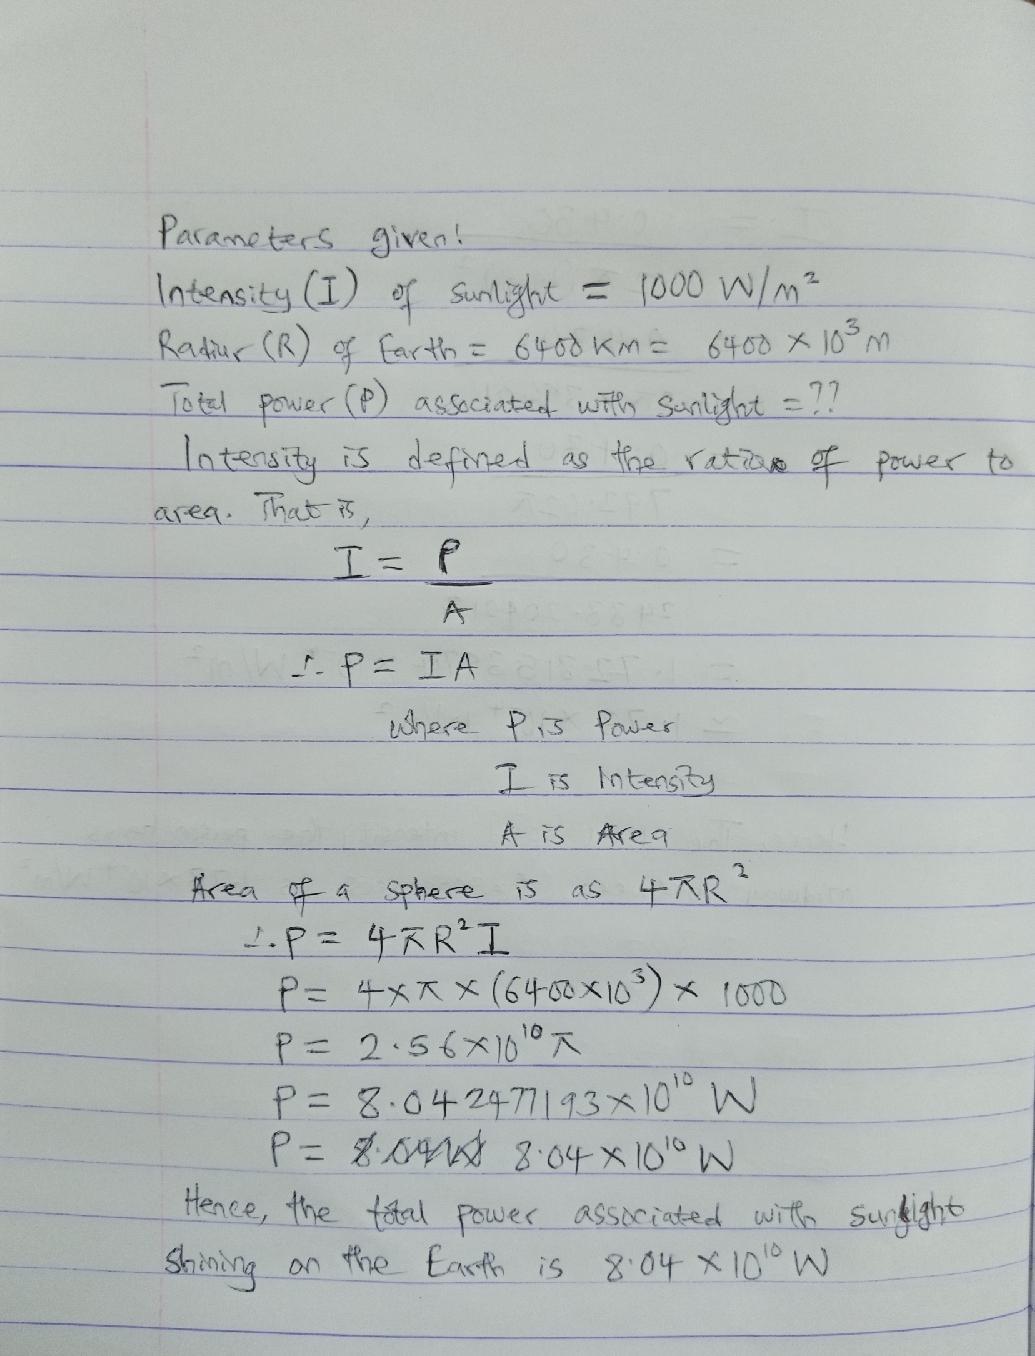 Parameters given!
Intensity (I) of sunlight = 1000 W/m²
Radius (R) of Earth = 6400 KM = 6400 × 10³ m
Total power (P) associated with Sunlight = ??
Intensity is defined as the ratio of power to
area. That is,
I = P
A
∴ P = IA
where P is Power
I is Intensity
A is Area
Area of a sphere is as 4πR²
∴ P = 4πR²I
P = 4×π×(6400×10³) × 1000
P = 2.56×10¹⁰π
P = 8.042477193×10¹⁰ W
P = 8.04×10¹⁰ W
Hence, the total power associated with sunlight
Shining on the Earth is 8.04 ×10¹⁰ W